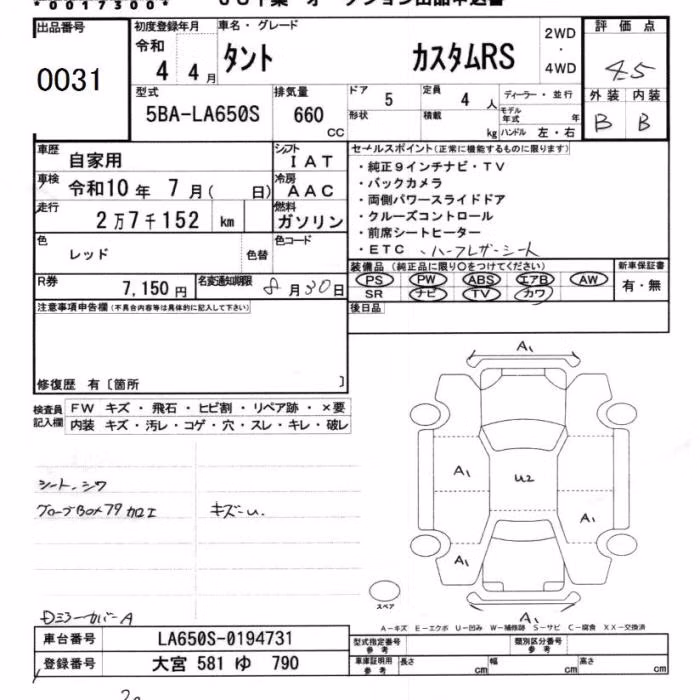 *0017300*
出品番号 初度登録年月 車名・グレード 評価点
0031 令和 4 4月 タント カスタムRS 2WD・4WD 4.5
型式 排気量 ドア 定員 ディーラー・並行 外装 内装
5BA-LA650S 660 CC 5 4 人 B B
形状 積載 kg モデル年式 年 ハンドル 左・右
車歴 自家用 シフト IAT
車検 令和10年 7月( 日) 冷房 AAC
走行 2万7千152 km 燃料 ガソリン
色 レッド 色替 色コード
R券 7,150円 名変通知期限 8月30日
セールスポイント(正常に機能するものに限ります)
・純正9インチナビ・TV
・バックカメラ
・両側パワースライドドア
・クルーズコントロール
・前席シートヒーター
・ETC ・ハーフレザーシート
装備品(純正品に限り○をつけてください) 新車保証書
PS PW ABS エアB AW 有・無
SR ナビ TV カワ
後日品
注意事項申告欄(不具合内容等は具体的に記入して下さい)
修復歴 有〔箇所 〕
検査員記入欄 FW キズ・飛石・ヒビ割・リペア跡・×要
内装 キズ・汚レ・コゲ・穴・スレ・キレ・破レ
シート、シワ
グローブBOXフタ加工 キズ小.
DミラーカバーA
A1
A1
U2
A1
A1
A1
スペア
A-キズ E-エクボ U-凹み W-補修跡 S-サビ C-腐食 XX-交換済
車台番号 LA650S-0194731 型式指定番号 参考 類別区分番号 参考
登録番号 大宮 581 ゆ 790 車庫証明用 参考 長さ cm 幅 cm 高さ cm